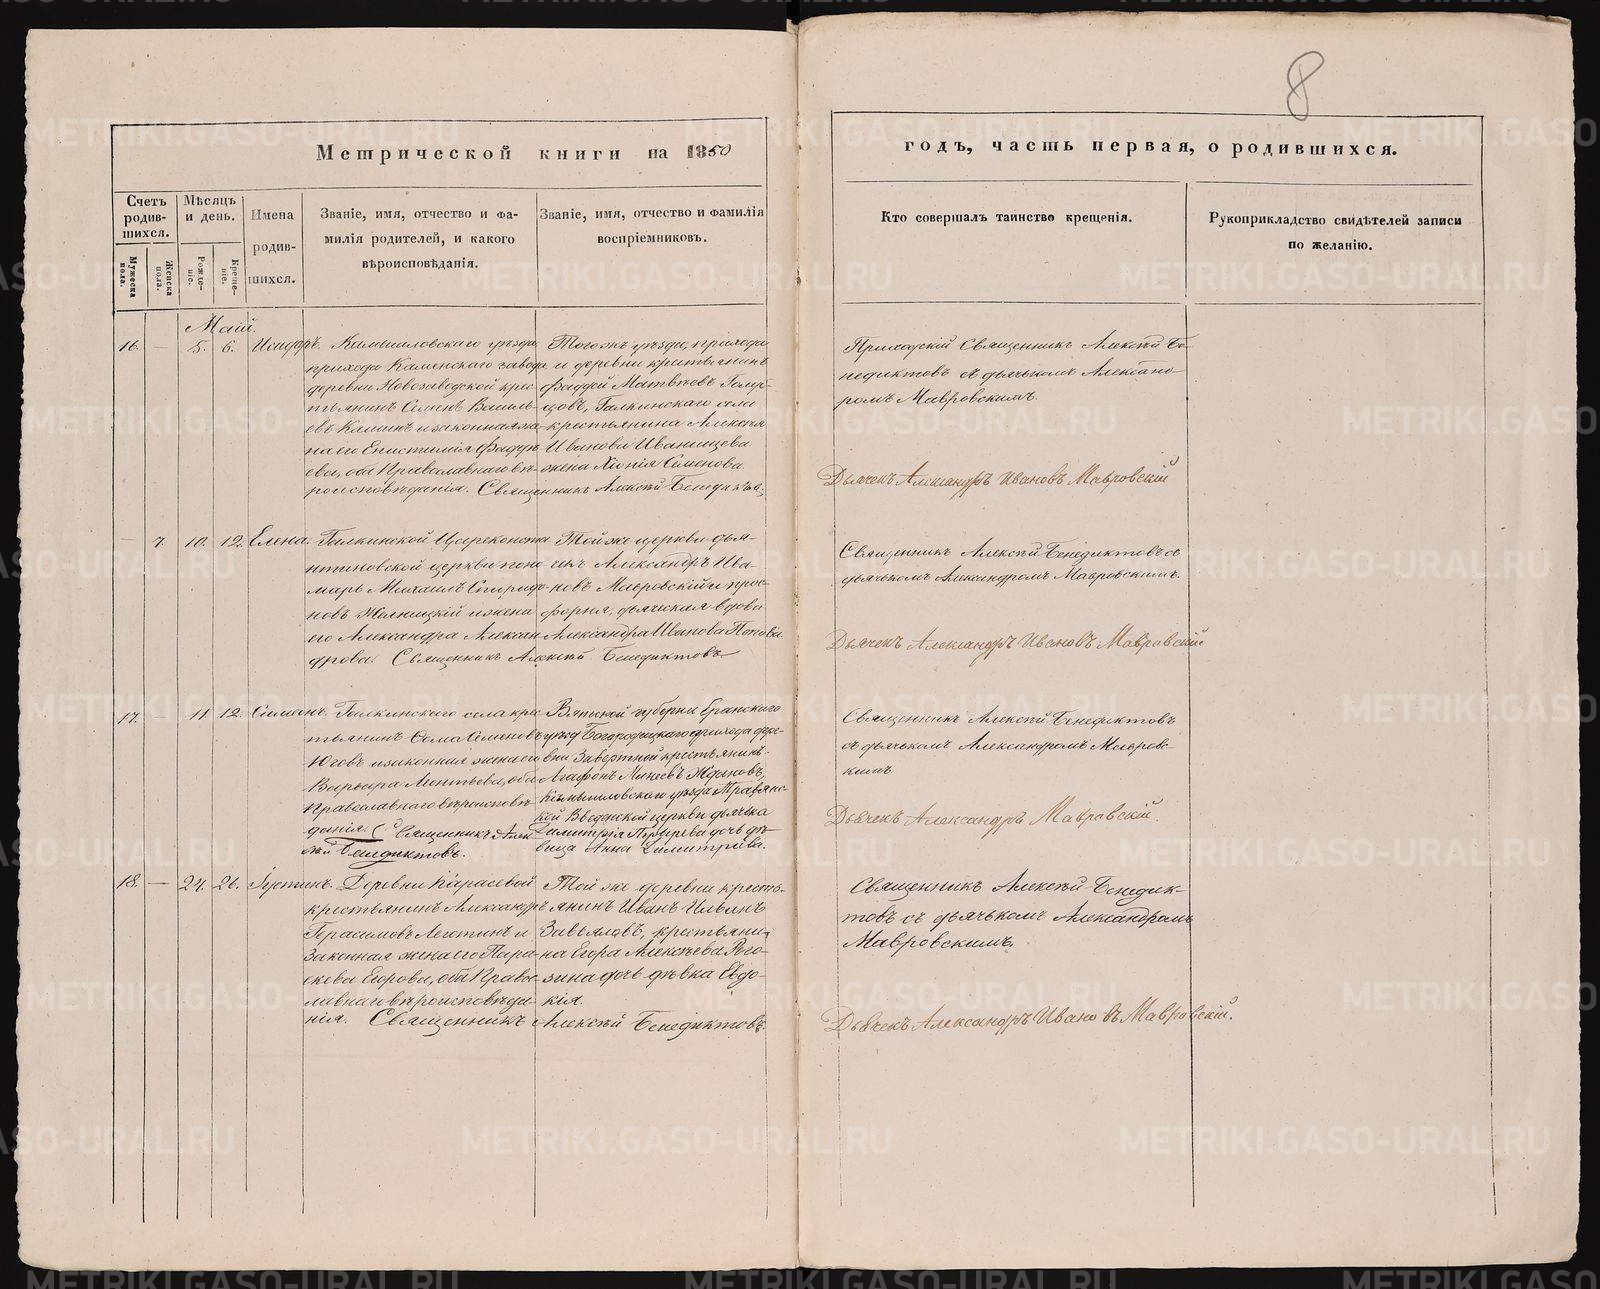 8
Метрической книги на 1850
годъ, часть первая, о родившихся.
Счетъ родив-шихся.
Мужеска пола.
Женска пола.
Мѣсяцъ и день.
Рожде-ніе.
Креще-ніе.
Имена родив-шихся.
Званіе, имя, отчество и фа-
милія родителей, и какого
вѣроисповѣданія.
Званіе, имя, отчество и фамилія
воспріемниковъ.
Кто совершалъ таинство крещенія.
Рукоприкладство свидѣтелей записи
по желанію.
Маій.
16. — 5. 6. Исидоръ.
Камышловскаго уѣзда,
прихода Каменскаго завода
деревни Новозаводской крес-
тьянинъ Семенъ Василь-
евъ и законная же-
на его Епистимія Фадде-
ева, оба Православнаго вѣ-
роисповѣданія. Священникъ Алексѣй Бенедиктовъ
Того жъ уѣзда, прихода
и деревни крестьянинъ
Фаддей Матвѣевъ
Галкинскаго села
крестьянина Алексѣя
Иванова Иванищева
жена Хіонія Семенова.
Приходскій Священникъ Алексѣй Бе-
недиктовъ съ дьячкомъ Александ-
ромъ Мавровскимъ.
Дьячекъ Александръ Ивановъ Мавровскій
— 7. 10. 12. Елена.
Галкинской Цареконста-
нтиновской церкви поно-
марь Михаилъ Спиридо-
новъ и жена
его Александра Алексан-
дрова. Священникъ Алексѣй Бенедиктовъ
Той же церкви дья-
чекъ Александръ Ива-
новъ Мавровскій и прос-
форня, дьяческая вдова
Александра Иванова Попова.
Священникъ Алексѣй Бенедиктовъ съ
дьячькомъ Александромъ Мавровскимъ.
Дьячекъ Александръ Ивановъ Мавровскій
17. — 11. 12. Симеонъ.
Галкинскаго села крес-
тьянинъ Сава Семеновъ
Юговъ и законная жена его
Варвара Леонтьева, оба
Православнаго вѣроисповѣ-
данія. Священникъ Алек-
сѣй Бенедиктовъ.
Вятской губерни Еранскаго
уѣзд Богородицкаго прихода дере-
вни Завертной крестьянинъ
Агафонъ Минеевъ Ждановъ,
Камышловскаго уѣзда Травянс-
кой Введенской церкви дьячка
Димитрія Пузырева дочь дѣ-
вица Анна Димитріева.
Священникъ Алексѣй Бенедиктовъ
съ дьячькомъ Александромъ Мавровс-
кимъ
Дьячекъ Александръ Мавровскій.
18. — 24. 26. Іустинъ.
Деревни Карасевой
крестьянинъ Александръ
Герасимовъ Леготинъ и
Законная жена его Пара-
скева Егорова, оба Право-
славнаго вѣроисповѣда-
нія. Священникъ Алексѣй Бенедиктовъ.
Той же деревни кресть-
янинъ Иванъ Ильинъ
Завьяловъ, крестьяни-
на Егора Алексѣева Рого-
зина дочь дѣвка Евдо-
кія.
Священникъ Алексѣй Бенедик-
товъ съ дьячькомъ Александромъ
Мавровскимъ.
Дьячекъ Александръ Ивановъ Мавровскій.
METRIKI.GASO-URAL.RU